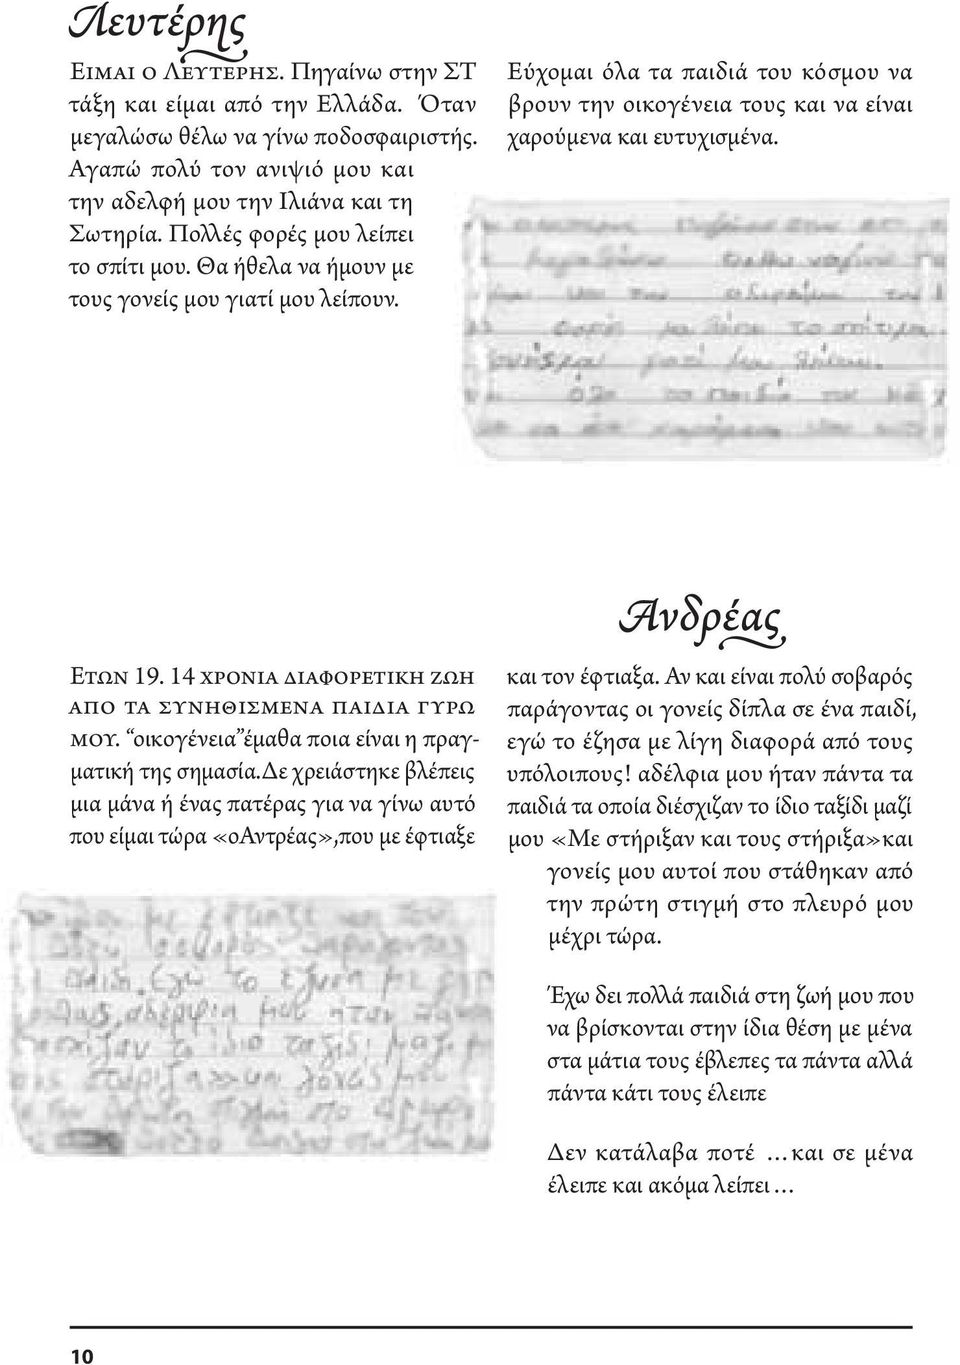 Λευτέρης
Ειμαι ο Λευτερης. Πηγαίνω στην ΣΤ
τάξη και είμαι από την Ελλάδα. Όταν
μεγαλώσω θέλω να γίνω ποδοσφαιριστής.
Αγαπώ πολύ τον ανιψιό μου και
την αδελφή μου την Ιλιάνα και τη
Σωτηρία. Πολλές φορές μου λείπει
το σπίτι μου. Θα ήθελα να ήμουν με
τους γονείς μου γιατί μου λείπουν.
Εύχομαι όλα τα παιδιά του κόσμου να
βρουν την οικογένεια τους και να είναι
χαρούμενα και ευτυχισμένα.
το σπίτι μου
γιατί μου
όλα τα παιδιά του
Ανδρέας
Ετων 19. 14 χρονια διαφορετικη ζωη
απο τα συνηθισμενα παιδια γυρω
μου. “οικογένεια”έμαθα ποια είναι η πραγ-
ματική της σημασία.Δε χρειάστηκε βλέπεις
μια μάνα ή ένας πατέρας για να γίνω αυτό
που είμαι τώρα «οΑντρέας»,που με έφτιαξε
και τον έφτιαξα. Αν και είναι πολύ σοβαρός
παράγοντας οι γονείς δίπλα σε ένα παιδί,
εγώ το έζησα με λίγη διαφορά από τους
υπόλοιπους! αδέλφια μου ήταν πάντα τα
παιδιά τα οποία διέσχιζαν το ίδιο ταξίδι μαζί
μου «Με στήριξαν και τους στήριξα»και
γονείς μου αυτοί που στάθηκαν από
την πρώτη στιγμή στο πλευρό μου
μέχρι τώρα.
Έχω δει πολλά παιδιά στη ζωή μου που
να βρίσκονται στην ίδια θέση με μένα
στα μάτια τους έβλεπες τα πάντα αλλά
πάντα κάτι τους έλειπε
Δεν κατάλαβα ποτέ …και σε μένα
έλειπε και ακόμα λείπει…
εγώ το έζησα με
αδέρφια μου ήταν
το ίδιο ταξίδι μαζί
10